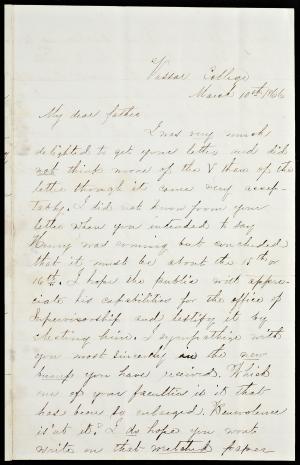 Vassar College
March 10th 1866
My dear father
I was very much
delighted to get your letter and did
not think more of the V than of the
letter though it came very accep-
tably. I did not know from your
letter when you intended to say
Henry was coming but concluded
that it must be about the 15th or
16th. I hope the public will appre-
ciate his capabilities for the office of
Supervisorship and testify it by
electing him. I sympathize with
you most sincerely in the new
bump you have received. Which
one of your faculties is it that
has been so enlarged. Benevolence
is it? I do hope you wont
write on that wretched paper